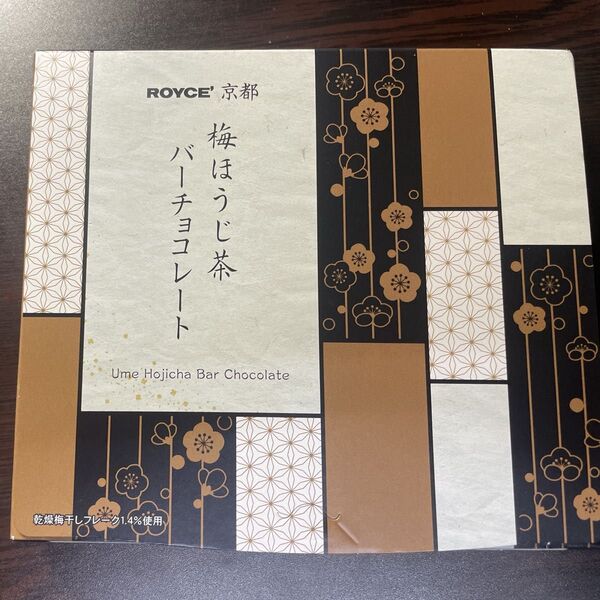 ROYCE' 京都
梅ほうじ茶
バーチョコレート
Ume Hojicha Bar Chocolate
乾燥梅干しフレーク1.4%使用